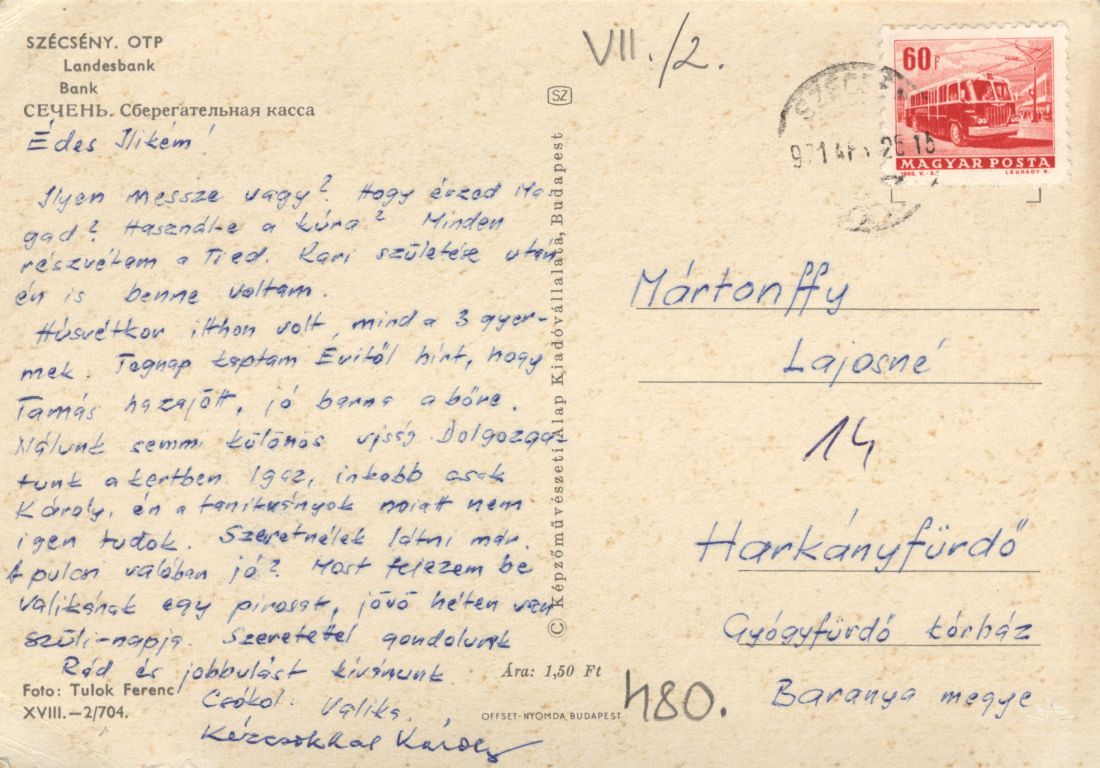 SZÉCSÉNY. OTP
Landesbank
Bank
СЕЧЕНЬ. Сберегательная касса
Édes Ilikém!
Ilyen messze vagy? Hogy érzed Ma
gad? Használ-e a kúra? Minden
részvétem a Tied. Kari születése után
én is benne voltam.
Húsvétkor itthon volt mind a 3 gyer-
mek. Tegnap kaptam Évitől hírt, hogy
Tamás hazajött, jó barna a bőre.
Nálunk semmi különös ujság. Dolgozga-
tunk a kertben. Igaz, inkább csak
Károly, én a tanítványok miatt nem
igen tudok. Szeretnélek látni már.
A pulcsi valóban jó? Most fejezem be
Valikának egy pirosat, jövő héten van
szüli-napja. Szeretettel gondolunk
Rád és jobbulást kívánunk.
Csókol Valika.
Kézcsókkal Károly
Foto: Tulok Ferenc
XVIII.—2/704.
Ára: 1,50 Ft
OFFSET-NYOMDA, BUDAPEST
SZ
© Képzőművészeti Alap Kiadóvállalata, Budapest
VII./2.
480.
SZÉCSÉNY
971 26 15
60f
MAGYAR POSTA
1963. V.-S.
LÉGRÁDY S.
Mártonffy
Lajosné
14
Harkányfürdő
Gyógyfürdő kórház
Baranya megye